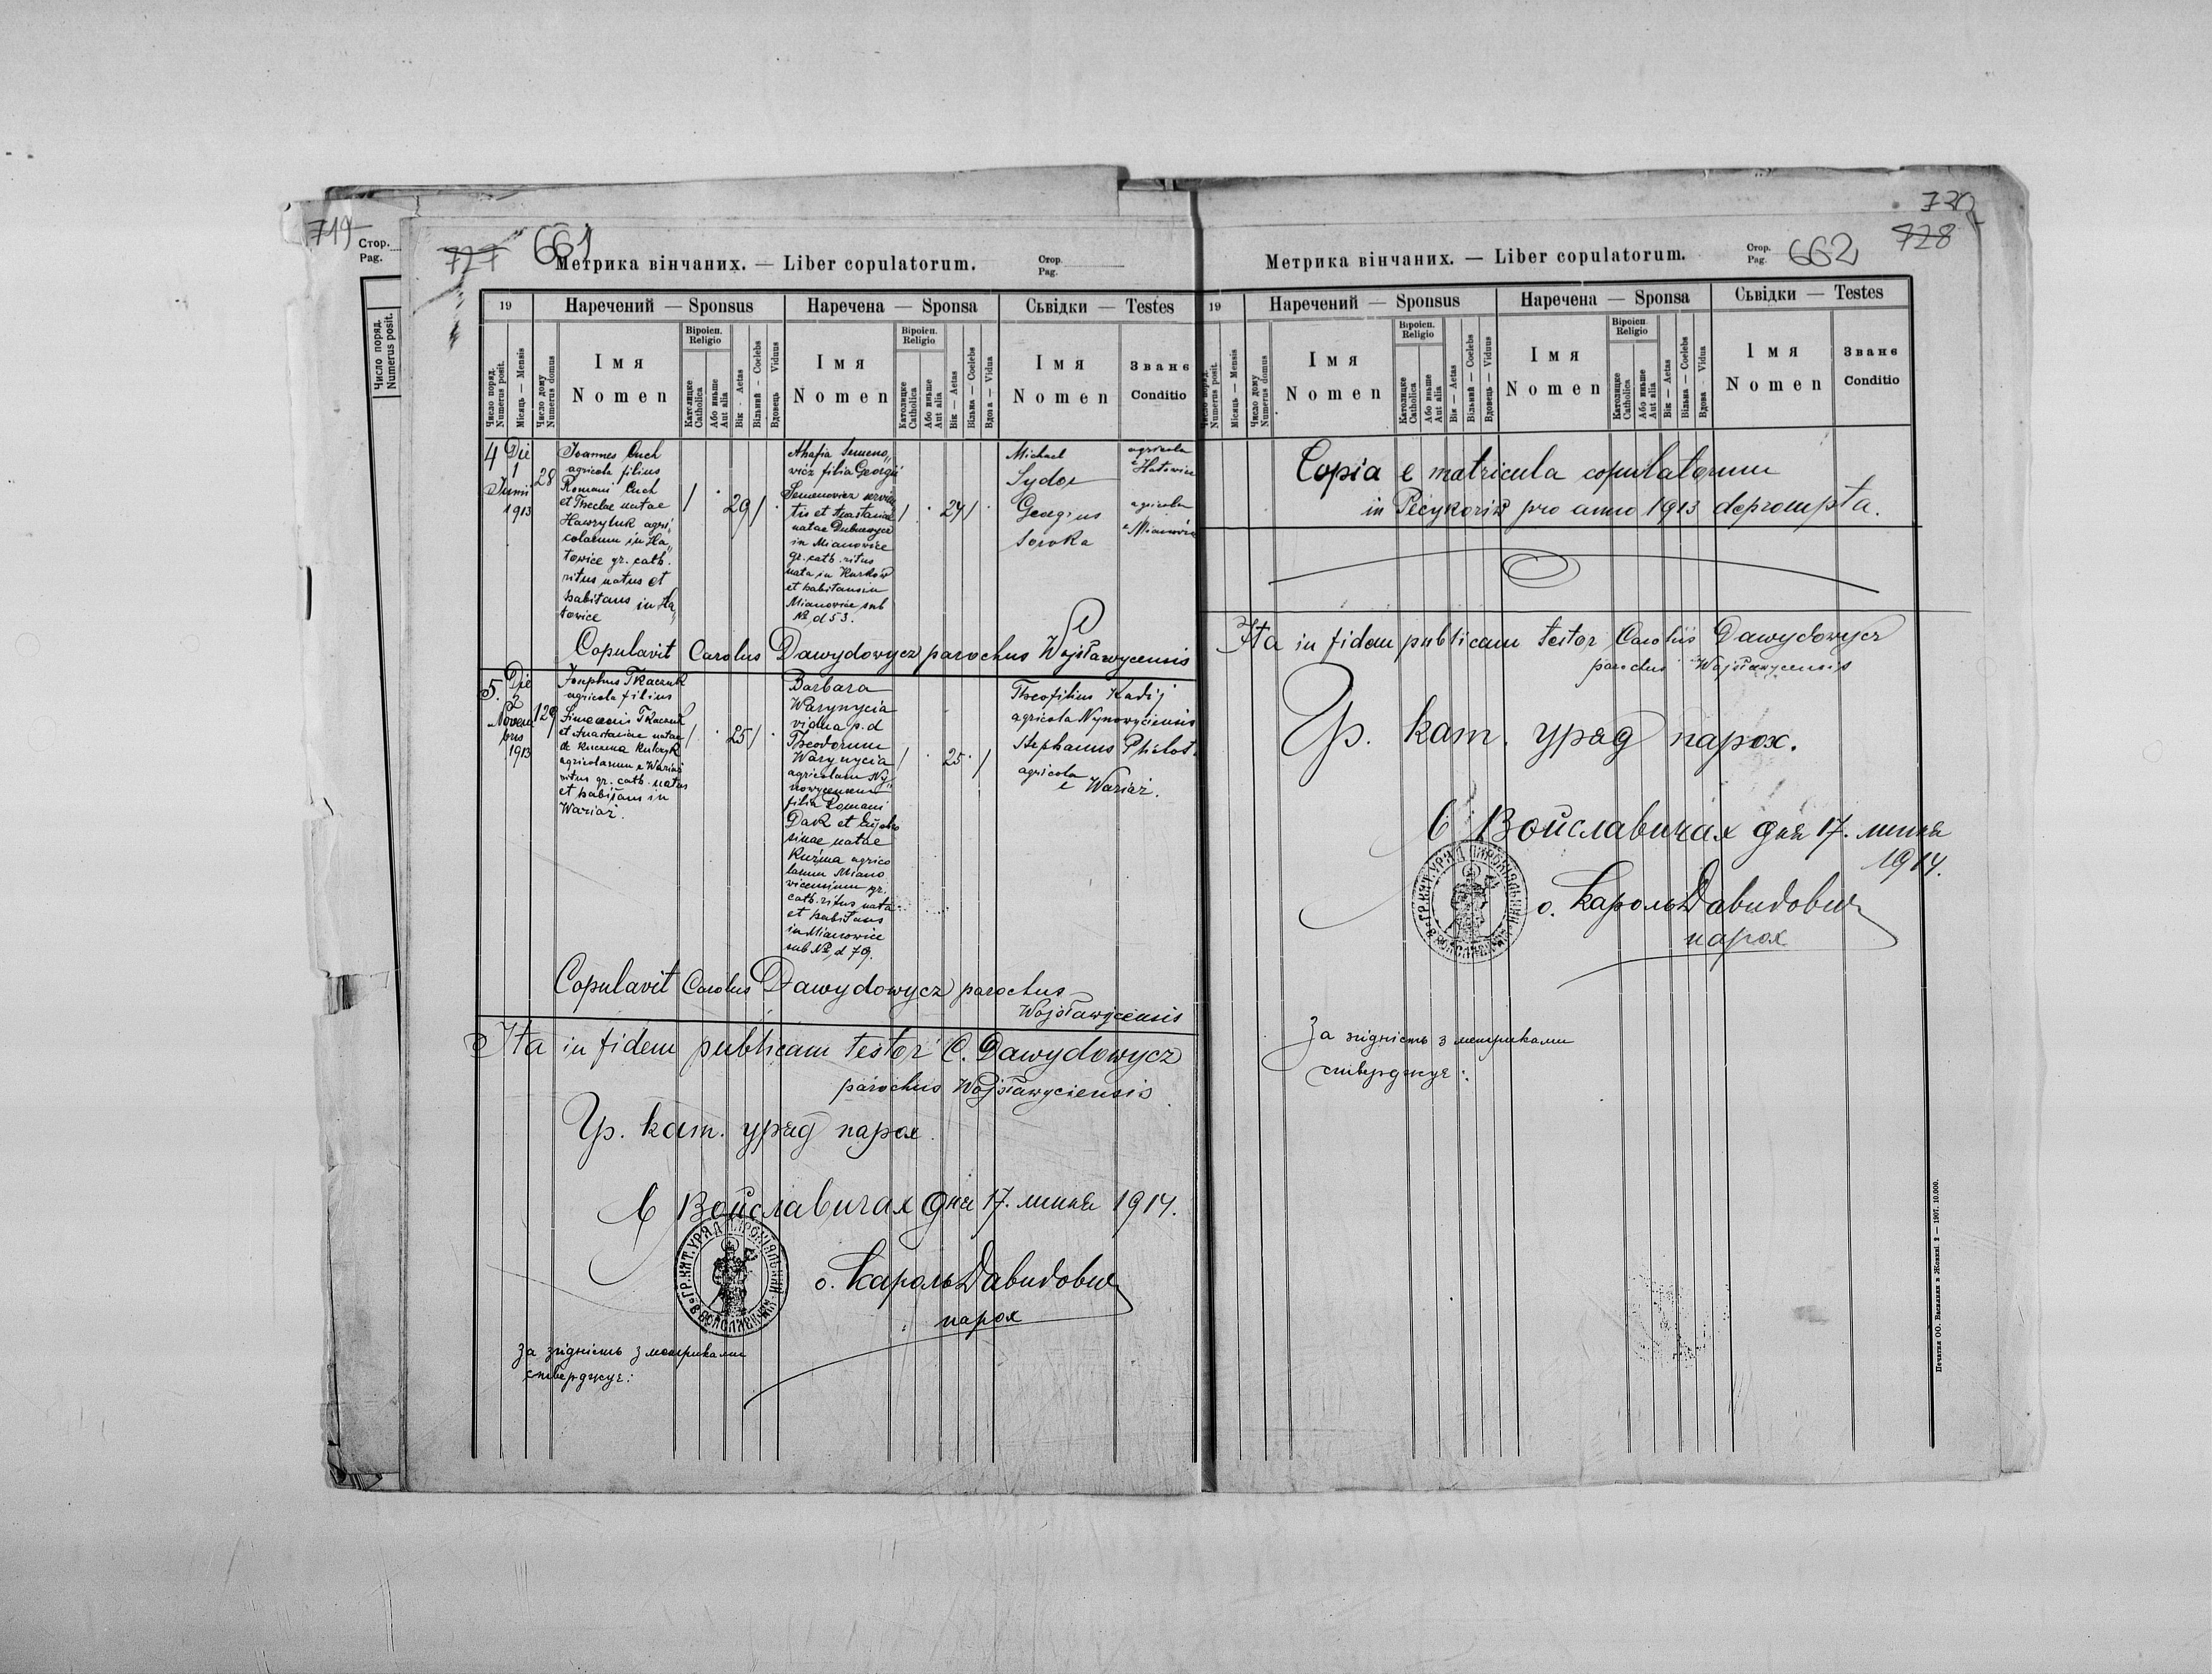 719
Стор.
Pag.
Число поряд.
Numerus posit.
727
661
Метрика вінчаних. — Liber copulatorum.
Стор.
Pag.
19
Наречений — Sponsus
Наречена — Sponsa
Сьвідки — Testes
Число поряд.
Numerus posit.
Місяць — Mensis
Число дому
Numerus domus
Імя
Nomen
Віроісп.
Religio
Католицке
Catholica
Або иньше
Aut alia
Вік - Aetas
Вільний - Coelebs
Вдовець - Viduus
Імя
Nomen
Віроісп.
Religio
Католицке
Catholica
Або иньше
Aut alia
Вік — Aetas
Вільна — Coelebs
Вдова — Vidua
Імя
Nomen
Званє
Conditio
4
Die
1
Junii
1913
28
Joannes Cuch
agricola filius
Romani Cuch
et Theclae natae
Hawryluk agri„
colarum in Ha„
towice gr. cath.
ritus natus et
habitans in Ha„
towice
/ · 29 / ·
Ahafia Semeno„
wicz filia Georgii
Semenowicz servien
tis et Anastasiae
natae
in Mianowice
gr. cath. ritus
nata in Kurków
et habitans in
Mianowice sub
№ d 53.
/ · 24 / ·
Michael
Sydor
Georgius
Soroka
agricola
e Hatowice
agricola
e Mianowice
Copulavit Carolus Dawydowycz parochus Wojsławycensis
5.
Die
2
Novem
bris
1913
129
Josephus Tkaczuk
agricola filius
Simeonis Tkaczuk
et Anastasiae natae
de Kuczma Kulczyk
agricolarum e Wariaż
ritus gr. cath. natus
et habitans in
Wariaż.
/ · 25 / ·
Barbara
Warynycia
vidua p. d
Theodorum
Warynycia
agricolam Ny„
nowycensem
filia Romani
Dak et Eufro
sinae natae
Kuźma agrico
larum Miano
vicensium gr.
cath. ritus nata
et habitans
in Mianowice
sub № d 79.
/ · 25 · /
Theofilius Kadij
agricola Nynowyciensis
Stephanus
agricola
e Wariaż.
Copulavit Carolus Dawydowycz parochus
Wojsławyciensis
Ita in fidem publicam testor C. Dawydowycz
parochus Wojsławyciensis
Гр. кат. уряд парох.
В Войславичах дня 17. липня 1914.
ГР. КАТ. УРЯД ПАРОХІЯЛЬНИЙ
о. Кароль Давидович
парох
За згідність з метриками
стверджує:
730
728
Метрика вінчаних. — Liber copulatorum.
Стор.
Pag.
662
19
Наречений — Sponsus
Наречена — Sponsa
Сьвідки — Testes
Число поряд.
Numerus posit.
Місяць — Mensis
Число дому
Numerus domus
Імя
Nomen
Віроісп.
Religio
Католицке
Catholica
Або иньше
Aut alia
Вік — Aetas
Вільний — Coelebs
Вдовець — Viduus
Імя
Nomen
Віроісп.
Religio
Католицке
Catholica
Або иньше
Aut alia
Вік — Aetas
Вільна — Coelebs
Вдова - Vidua
Імя
Nomen
Званє
Conditio
Copia e matricula copulatorum
in pro anno 1913 deprompta.
Ita in fidem publicam testor Carolus Dawydowycz
parochus Wojsławycensis
Гр. кат. уряд парох.
В Войславичах дня 17. липня
1914.
ГР. КАТ. УРЯД ПАРОХІЯЛЬНИЙ
о. Кароль Давидович
парох
За згідність з метриками
стверджує:
Печатня ОО. Василиян в Жовкві. 2 — 1907. 10.000.